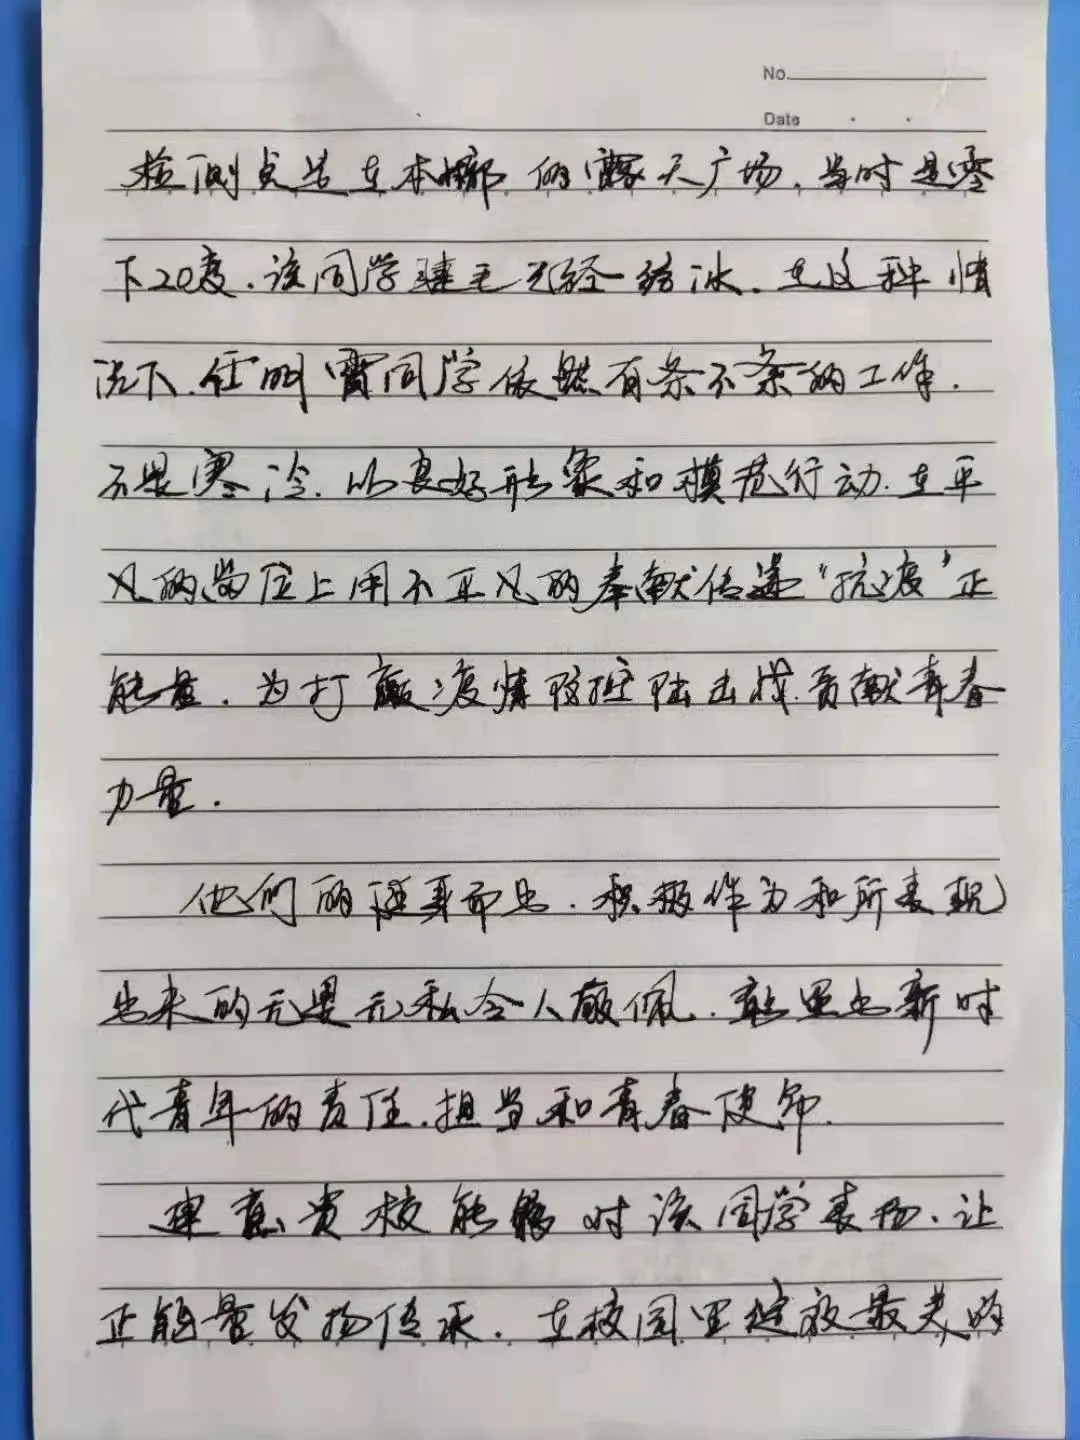 No.
Date
检测点是在本辖的露天广场，当时是零
下20度，该同学睫毛已经结冰，在这种情
况下，任明霄同学依然有条不条的工作，
不畏寒冷，以良好形象和模范行动，在平
凡的岗位上用不平凡的奉献传递“抗疫”正
能量，为打赢疫情防控阻击战贡献青春
力量．
他们的挺身而出，积极作为和所表现
出来的无畏无私令人敬佩，彰显出新时
代青年的责任，担当和青春使命．
建意贵校能够对该同学表扬，让
正能量发扬传承，在校园里绽放最美的